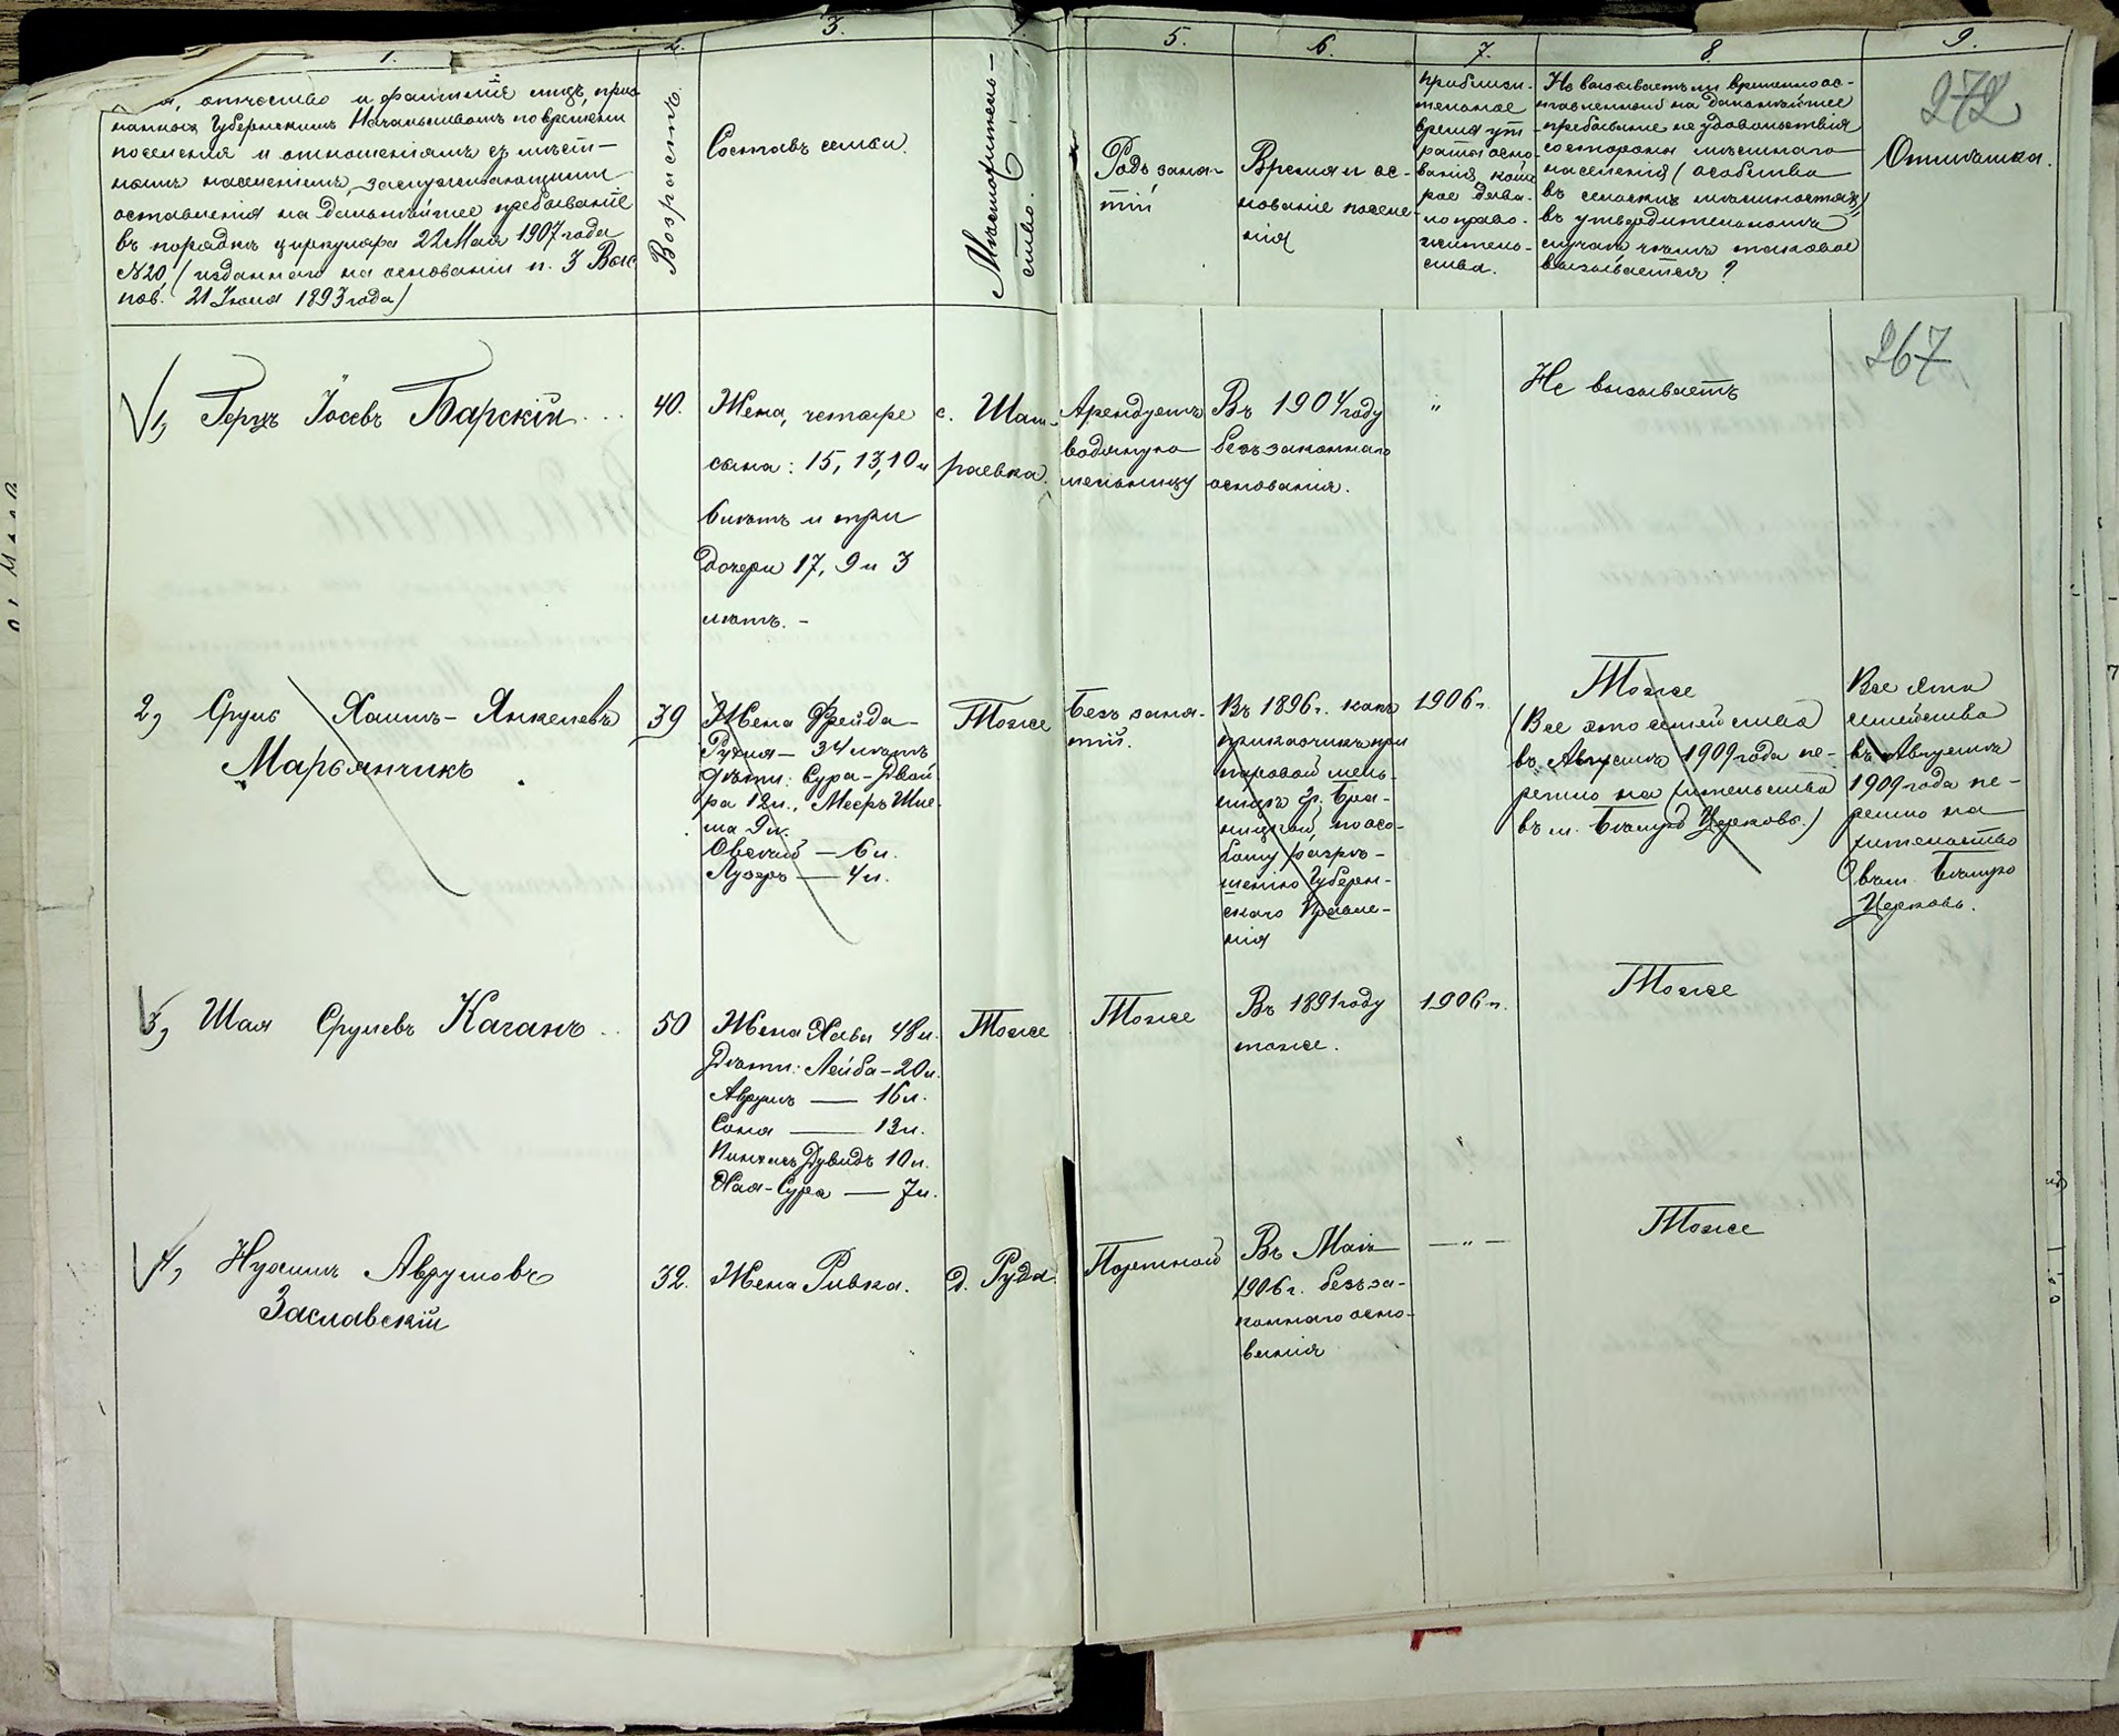 1.
я, отчество и фамилія лицъ, приз
нанныхъ Губернскимъ Начальствомъ по времени
поселенія и отношеніямъ съ мѣст-
нымъ населеніемъ, заслуживающими
оставленія на дальнѣйшее пребываніе
въ порядкѣ циркуляра 22 Мая 1907 года
№20, (изданнаго на основаніи п. 3 Выс.
пов. 21 Іюня 1893 года)
2.
Возрастъ.
3.
Составъ семьи.
Мѣстожитель-
ство.
5.
Родъ заня-
тій
6.
Время и ос-
нованіе поселе-
нія
7.
Приблизи-
тельное
время ут-
раты осно-
ванія, кото
рое дава-
ло право
житель-
ства.
8.
Не вызываетъ ли временно ос-
тавленный на дальнѣйшее
пребываніе неудовольствія
со стороны мѣстнаго
населенія (особенно
въ сельскихъ мѣстностяхъ)
въ утвердительномъ
случаѣ чѣмъ таковое
вызывается?
9.
272
Отмѣтка.
267
1, Герцъ Іосевъ Барскій
40.
Жена, четыре
сына: 15, 13, 10 и
6 лѣтъ и три
дочери 17, 9 и 3
лѣтъ. -
с. Шам-
раевка.
Арендуетъ
водяную
мельницу
Въ 1904 году
безъ законнаго
основанія.
"
Не вызываетъ
2, Сруль Хаимъ-Янкелевъ
Марьянчикъ
39
Жена Фрейда-
Рухля - 34 лѣтъ
Дѣти: Сура-Двой
ра 12 л., Мееръ Шле-
ма 9 л.
Овсей - 6 л.
Лузеръ - 4 л.
Тоже
Безъ заня-
тій.
Въ 1896 г. какъ
прикащикъ при
паровой мель-
ницѣ гр. Бра-
ницкой, по осо-
бому разрѣ-
шенію Губерн-
скаго Правле-
нія
1906 г.
Тоже
(Все это семейство
въ Августѣ 1909 года пе-
решло на жительство
въ м. Бѣлую Церковь.)
Все это
семейство
въ Августѣ
1909 года пе-
решло на
жительство
въ м. Бѣлую
Церковь.
3, Шая Срулевъ Каганъ
50
Жена Хава 48 л.
Дѣти: Лейба - 20 л.
Аврумъ - 16 л.
Соня - 13 л.
Пинхасъ Дувидъ 10 л.
Хая-Сура - 7 л.
Тоже
Тоже
Въ 1891 году
тоже.
1906 г.
Тоже
4, Нухимъ Аврумовъ
Заславскій
32.
Жена Ривка.
д. Руда.
Портной
Въ Маѣ
1906 г. безъ за-
коннаго осно-
ванія
- " -
Тоже